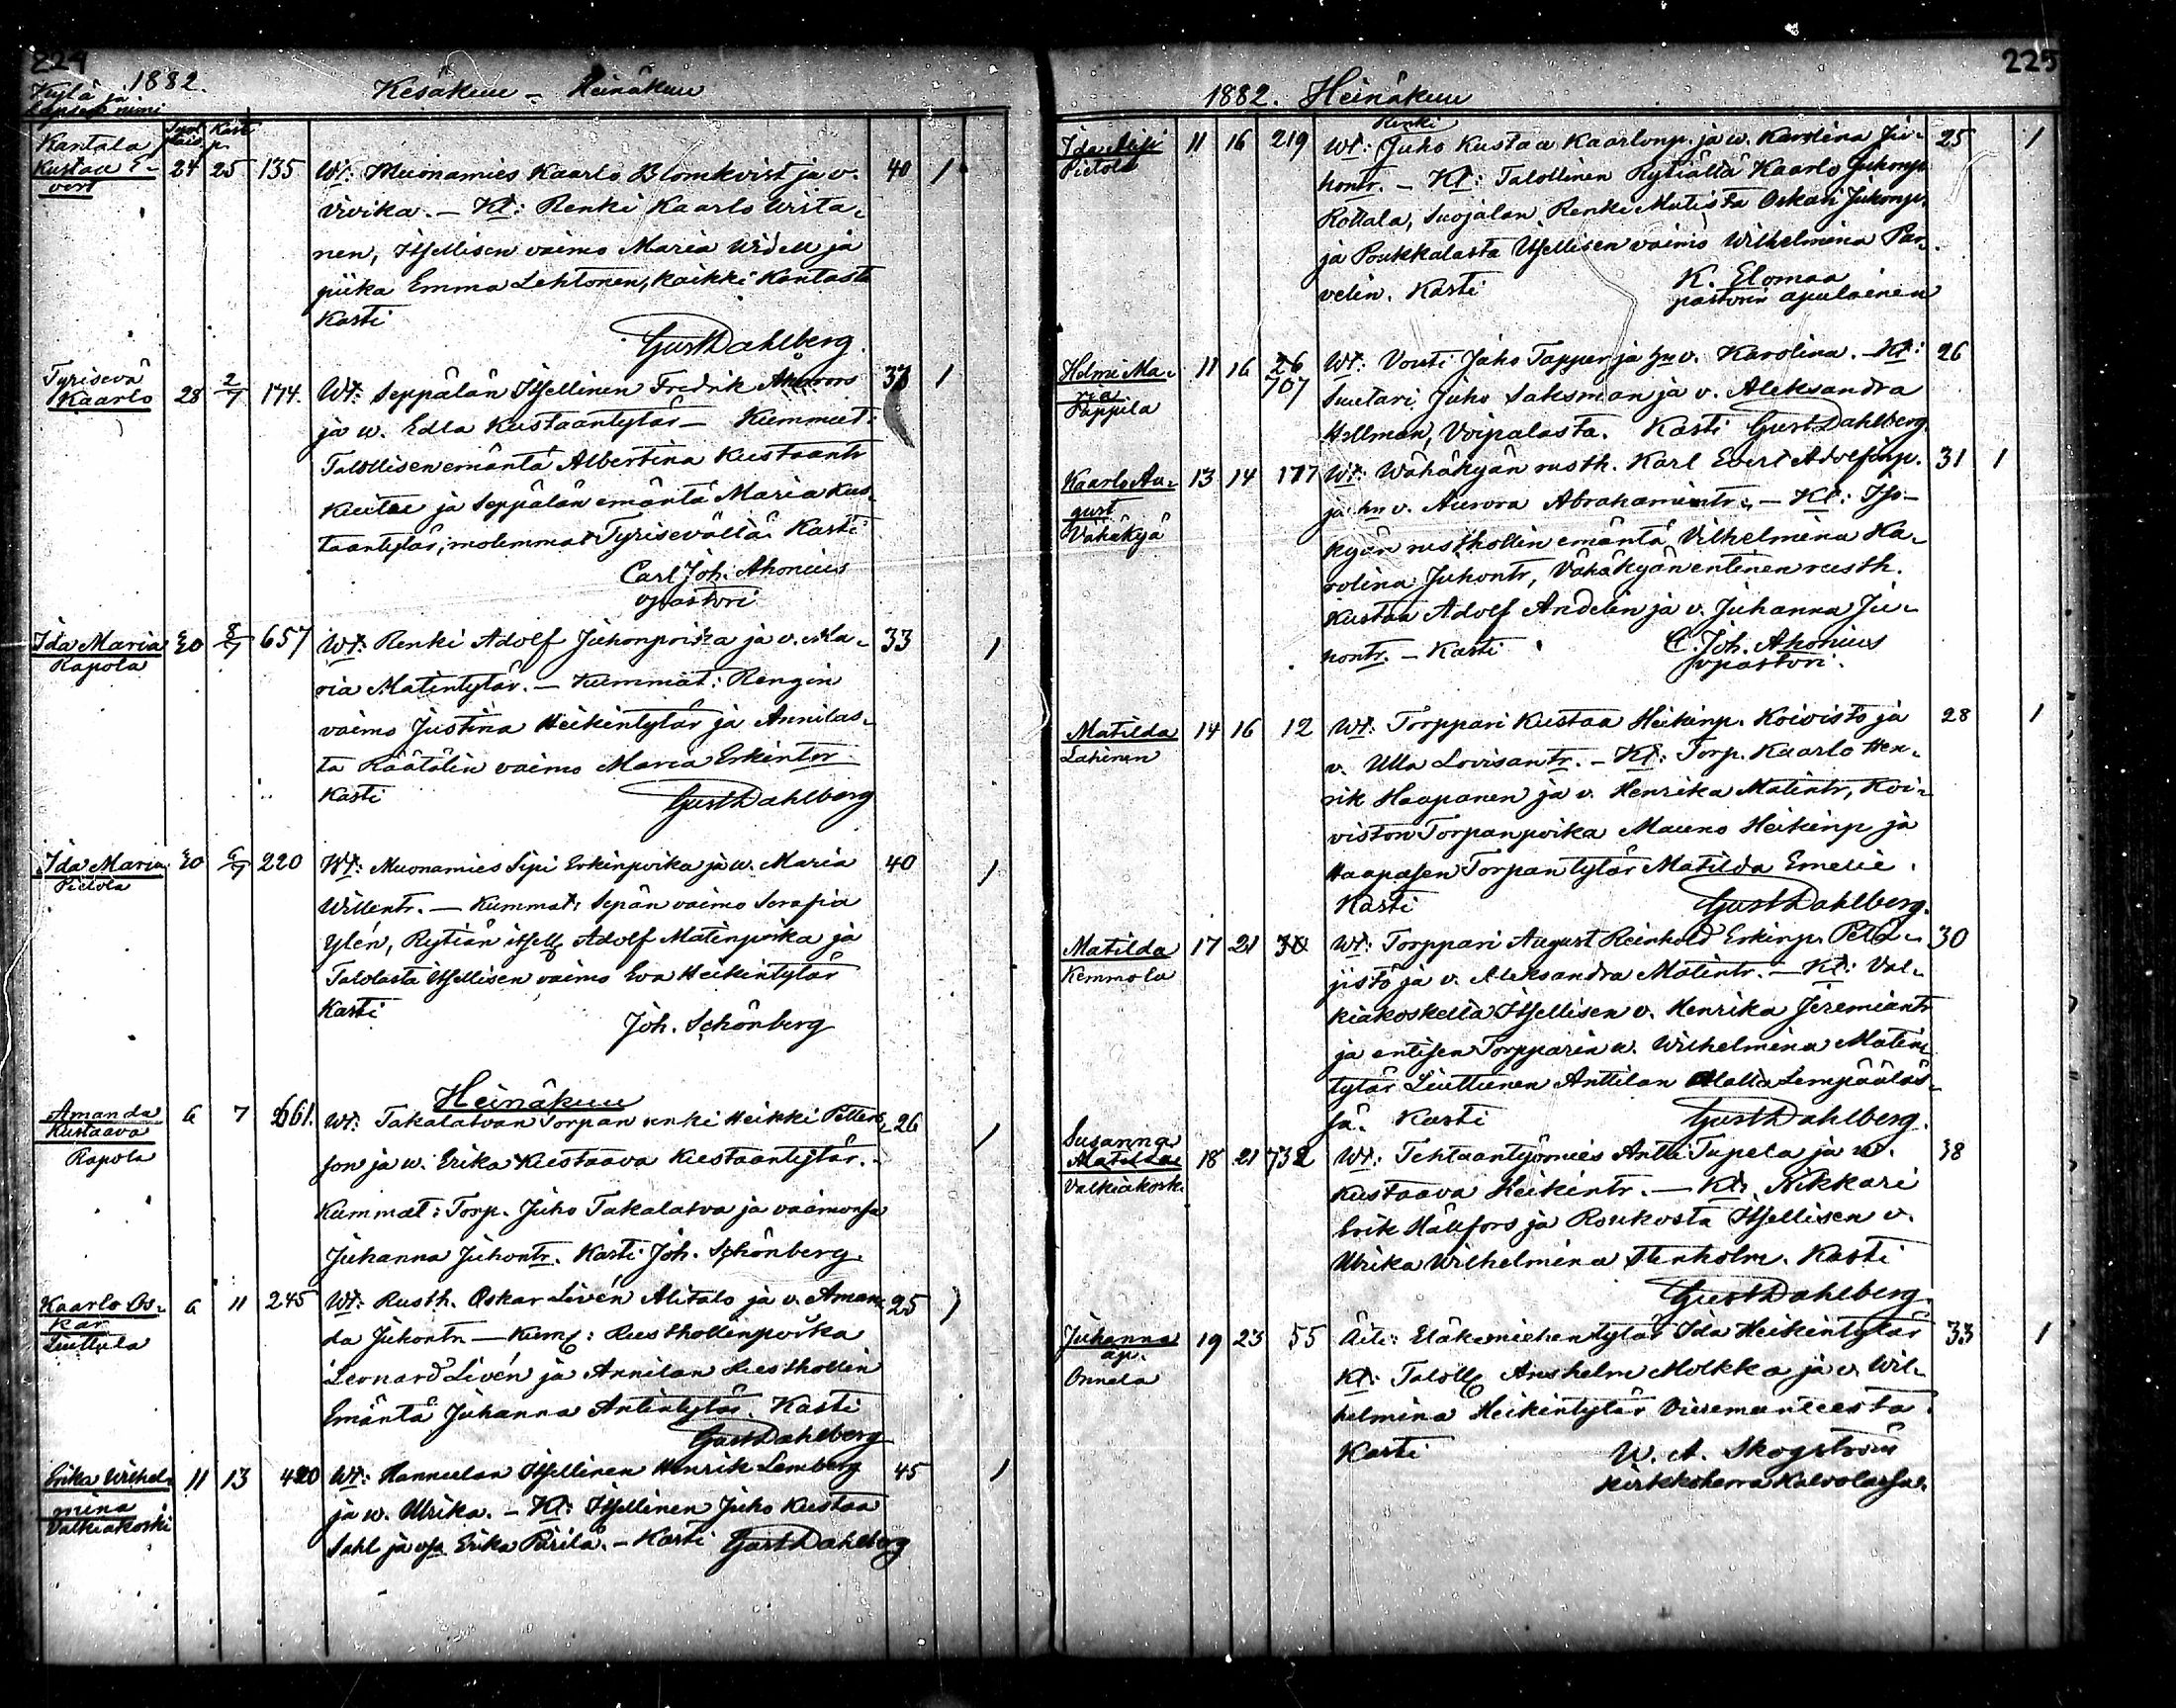 224
1882. Kesäkuu - Heinäkuu
Kylä ja
lapsen nimi
Kantala
Kustaa E-
vert
24 25 135 Wt: Muonamies Kaarlo Blomkvist ja v. 40 1
Vivika. — Kt: Renki Kaarlo Wirta-
nen, Itsellisen vaimo Maria Widell ja
piika Emma Lehtonen, kaikki Kantasta
Kasti
Gust Dahlberg.
Tyrisevä
Kaarlo 28 2/7 174. Wt: Seppälän Itsellinen Fredrik 1
ja w. Edla Kustaantytär — Kummat:
Talollisen emäntä Albertina Kustaantr
ja Seppälän emäntä Maria Kus-
taantytär, molemmat Tyrisevältä. Kasti
Carl Joh. Ahonius
vpastori
Ida Maria 30 8/7 657 Wt: Renki Adolf Juhonpoika ja v. Ma- 33 1
Rapola
ria Matintytär. — Kummat: Rengin
vaimo Justina Heikintytär ja Annilas-
ta Räätälin vaimo Maria Erkintr
Kasti Gust Dahlberg
Ida Maria 30 9/7 220 Wt: Muonamies Sipi Erkinpoika ja w. Maria 40 1
Pietola
Willentr. — Kummat: Sepän vaimo Serafia
Ylén, Rytiän itsell Adolf Matinpoika ja
Talolasta Itsellisen vaimo Eva Heikintytär
Kasti
Joh. Schönberg
Heinäkuu
Amanda 6 7 661. Wt: Takalatvan Torpan renki Heikki Petters- 26 1
Kustaava
Rapola
son ja w. Erika Kustaava Kustaantytär.
Kummat: Torp. Juho Takalatva ja vaimonsa
Juhanna Juhontr. Kasti Joh. Schönberg.
Kaarlo Os- 6 11 245 Wt: Rusth. Oskar Livén Alitalo ja v. Aman- 25 1
kar
Liuttula
da Juhontr — Kum: Rusthollinpoika
Leonard Livén ja Annilan Rusthollin
Emäntä Juhanna Antintytär. Kasti
Gust Dahlberg
Erika Wilhel- 11 13 420 Wt: Hannulan Itsellinen Henrik Lemberg 45 1
mina
Valkiakoski
ja w. Ulrika. — Kt: Itsellinen Juho Kustaa
Sahl ja vsa Erika Pärilä. — Kasti Gust Dahlberg
225
1882. Heinäkuu
Renki
Ida 11 16 219 Wt: Juho Kustaa Kaarlonp. ja w. Karolina Ju- 25 1
Pietola
hontr. — Kt: Talollinen Rytiältä Kaarlo Juhonp
Kottala, Suojalan Renki Oskari Juhonp.
ja Poukkalasta Itsellisen vaimo Wilhelmina Par-
velin. Kasti K. Elomaa
pastorin apulainen
Helmi Ma- 11 16 26 Wt: Vouti Juho Tapper ja hn v. Karolina. — Kt: 26
ria 707
Pappila
Suutari Juho Saksman ja v. Aleksandra
Hellman, Voipalasta. Kasti Gust Dahlberg.
Kaarlo Au- 13 14 177 Wt: Wähäkyän rusth. Karl Evert Adolfinp. 31 1
gust
Vähäkyä
ja hn v. Aurora Abrahamintr. — Kt: Iso-
kyän rusthollin emäntä Vilhelmina Ka-
rolina Juhontr, Vähäkyän entinen rusth.
Kustaa Adolf Andelin ja v. Juhanna Ju-
hontr. — Kasti C. Joh. Ahonius
vpastori.
Matilda 14 16 12 Wt: Torppari Kustaa Heikinp. Koivisto ja 28 1
Lahinen
v. Ulla Lovisantr. — Kt: Torp. Kaarlo Hen-
rik Haapanen ja v. Henrika Matintr, Koi-
viston Torpanpoika Mauno Heikinp ja
Haapasen Torpan tytär Matilda Emelie.
Kasti Gust Dahlberg.
Matilda 17 21 30 Wt: Torppari August Reinhold Erkinp. Petä- 30
Kemmola
jistö ja v. Aleksandra Matintr. — Kt: Val-
kiakoskella Itsellisen v. Henrika Jeremiantr
ja entisen Torpparin w. Wilhelmina Matin-
tytär Liuttunen Anttilan Lempääläs-
sä. Kasti Gust Dahlberg.
Susanna
Matilda 18 21 732 Wt: Tehtaantyömies Antti Tupela ja w. 38
Valkiakosk.
Kustaava Heikintr. — Kt: Nikkari
Erik Hällfors ja Roukosta Itsellisen v.
Ulrika Wilhelmina Stenholm. Kasti
Gust Dahlberg.
Juhanna 19 23 55 Äiti: Eläkemiehen tytär Ida Heikintytär 33 1
äp.
Onnela
Kt: Taloll Anshelm Molkka ja v. Wil-
helmina Heikintytär
Kasti W. A. Skogström
kirkkoherra Kalvolassa.